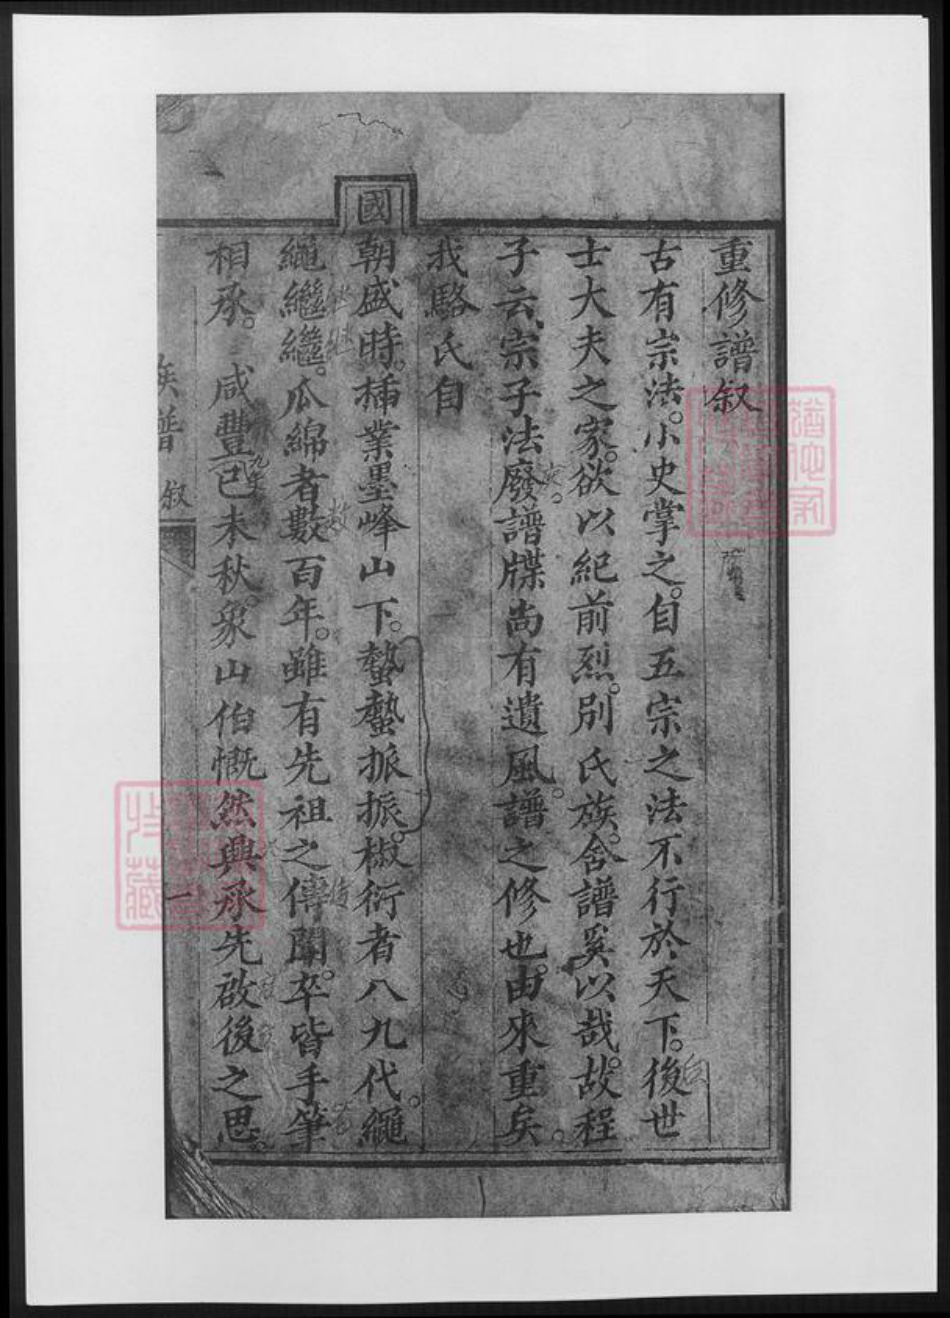 重修譜叙
古有宗法。小史掌之。自五宗之法不行於天下。後世
士大夫之家。欲以紀前烈。別氏族。舍譜奚以哉。故程
子云、宗子法廢。譜牒尚有遺風。譜之修也。由來重矣。
我駱氏自
國朝盛時。插業墨峰山下。蟄蟄振振。椒衍者八九代。繩
繩繼繼。瓜綿者數百年。雖有先祖之傳聞。卒皆手筆
相承。咸豐己未秋。象山伯慨然興承先啟後之思。
族譜 叙 一